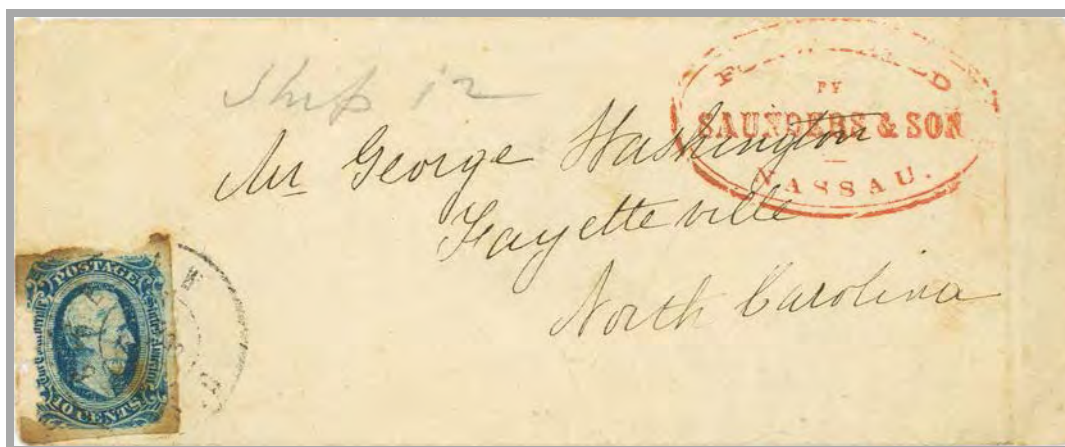 Ship 12
BY
SAUNDERS & SON
NASSAU.
Mr George Washington
Fayetteville
North Carolina
POSTAGE
The Confederate States of America
10 CENTS